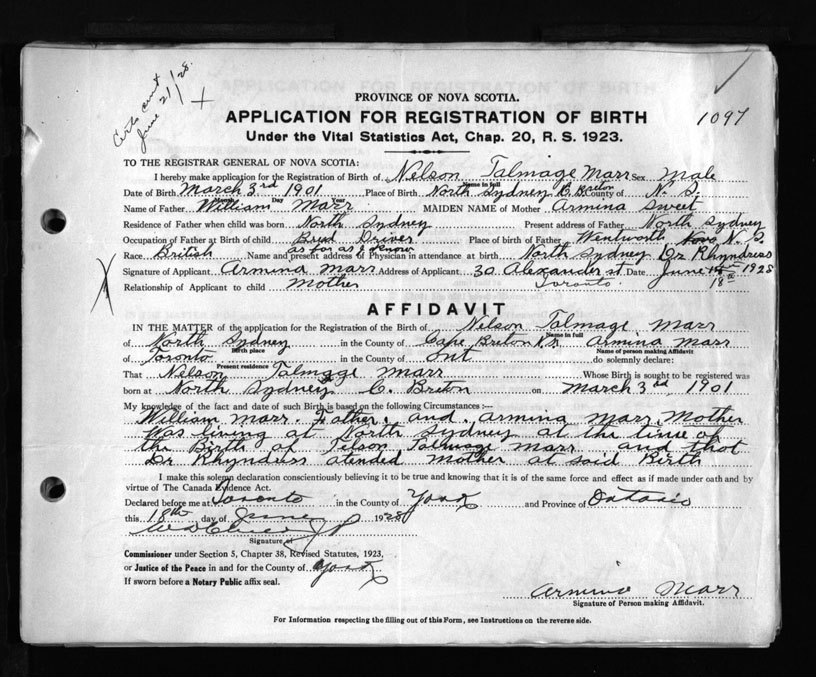 Certs sent
June 21/28.
X
PROVINCE OF NOVA SCOTIA.
APPLICATION FOR REGISTRATION OF BIRTH 1097
Under the Vital Statistics Act, Chap. 20, R. S. 1923.
TO THE REGISTRAR GENERAL OF NOVA SCOTIA:
I hereby make application for the Registration of Birth of Nelson Talmage Marr Sex Male
Name in full
Date of Birth March 3rd 1901 Place of Birth North Sydney C Breton County of N. S.
Day Year
Name of Father William Marr MAIDEN NAME of Mother Armina Sweet
Residence of Father when child was born North Sydney Present address of Father North Sydney
Occupation of Father at Birth of child Bread Driver Place of birth of Father Wentworth Nova N. S.
as far as I know
Race British Name and present address of Physician in attendance at birth North Sydney Dr Rhyndress
Signature of Applicant Armina Marr Address of Applicant 30 Alexander st Date June 1928
Relationship of Applicant to child Mother Toronto. 18th
AFFIDAVIT
IN THE MATTER of the application for the Registration of the Birth of Nelson Talmage Marr
Name in full
of North Sydney in the County of Cape Breton N.S. Armina Marr
Birth place Name of person making Affidavit
of Toronto in the County of Ont do solemnly declare:
Present residence
That Nelson Talmage Marr Whose Birth is sought to be registered was
born at North Sydney C. Breton on March 3rd, 1901
My knowledge of the fact and date of such Birth is based on the following Circumstances :—
William Marr. Father. and Armina Marr, Mother
Was living at North Sydney at the time of
the Birth of Nelson Talmage Marr and that
Dr Rhyndress atended Mother at said Birth
I make this solemn declaration conscientiously believing it to be true and knowing that it is of the same force and effect as if made under oath and by
virtue of The Canada Evidence Act.
Declared before me at Toronto in the County of York and Province of Ontario
this 18th day of June 1928
J P
Signature of
Commissioner under Section 5, Chapter 38, Revised Statutes, 1923,
or Justice of the Peace in and for the County of York
If sworn before a Notary Public affix seal.
Armina Marr
Signature of Person making Affidavit.
For Information respecting the filling out of this Form, see Instructions on the reverse side.